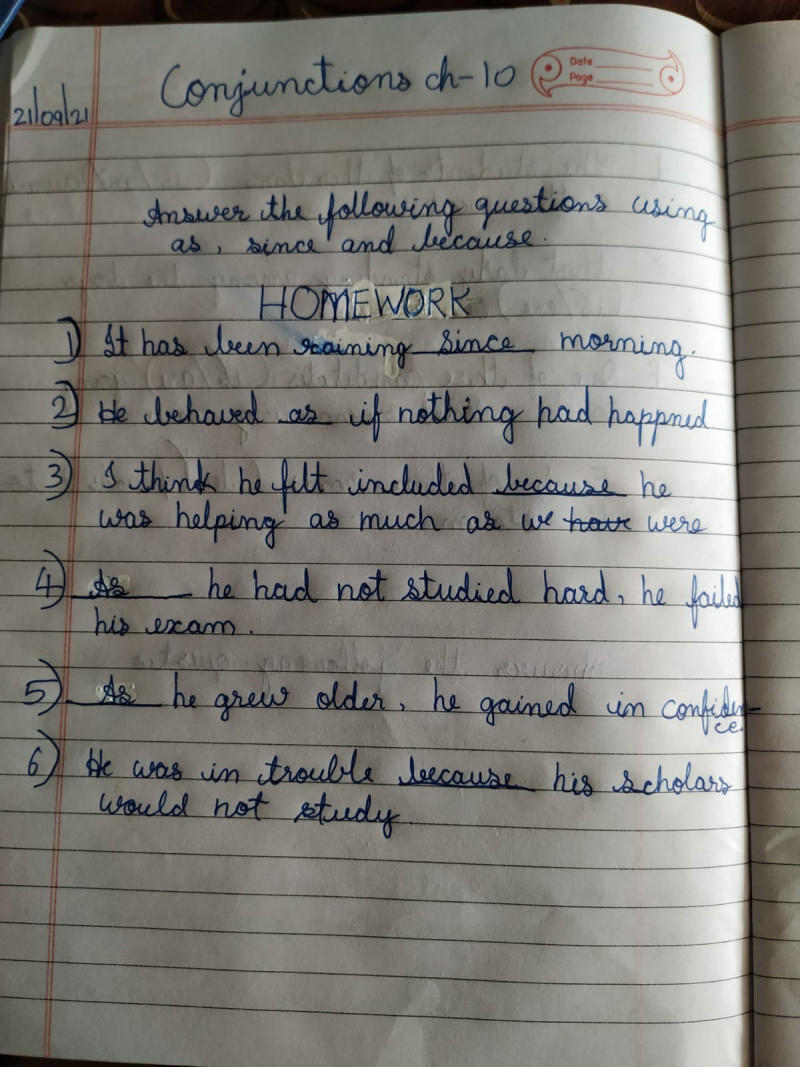 Conjunctions ch-10
Date
Page
21/09/21
Answer the following questions using
as, since and because.
HOMEWORK
1) It has been raining since morning.
2) He behaved as if nothing had happned
3) I think he felt included because he
was helping as much as we have were
4) As he had not studied hard, he failed
his exam.
5) As he grew older, he gained in confiden-
ce.
6) He was in trouble because his scholars
would not study.